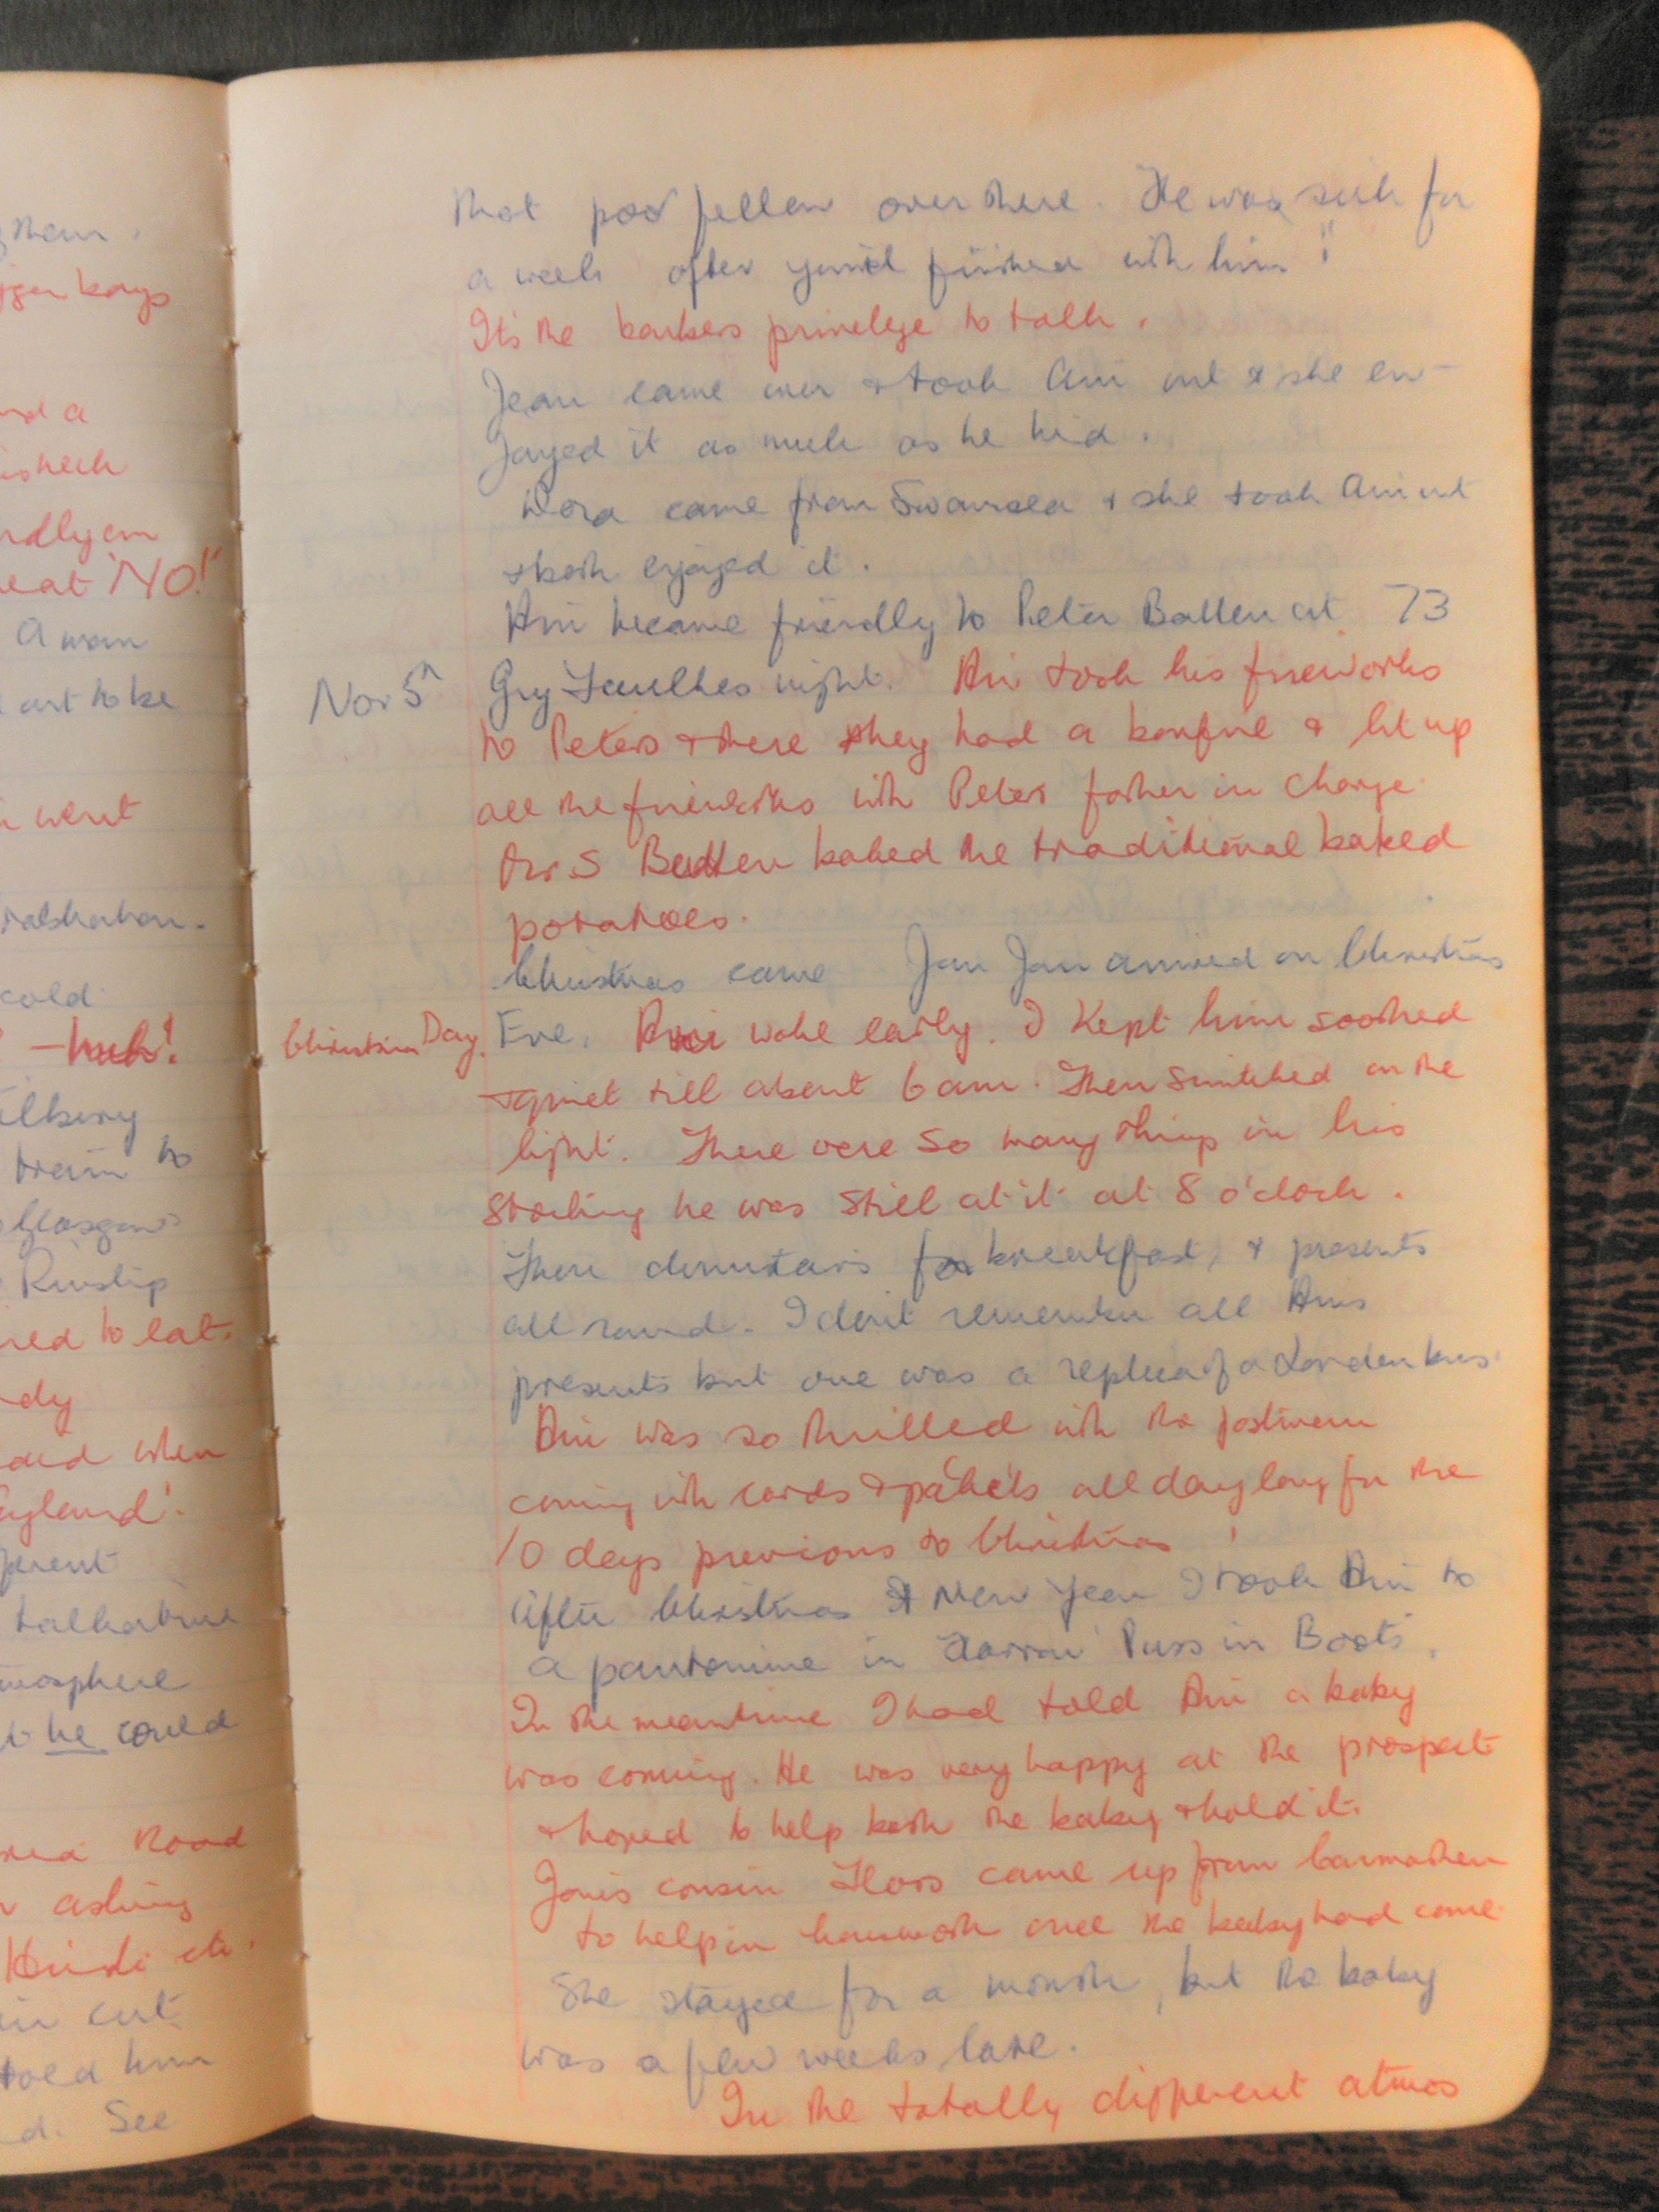 them.
and a
his neck
eat 'NO!"
A man
out to be
went
cold
Tilbury
train to
Glasgow
Ruislip
to eat.
dy
when
England'.
atmosphere
he could
Road
asking
Hindi etc.
in cut
told him
See
that poor fellow over there. He was sick for
a week after you'd finished with him!"
Its the barbers privelege to talk.
Jean came over & took Ani out & she en-
joyed it as much as he did.
Dora came from Swansea & she took Ani out
& both enjoyed it.
Ani became friendly to Peter Batten at 73
Nov 5th Guy Faulkes night. Ani took his fireworks
to Peters & there they had a bonfire & lit up
all the fireworks with Peters father in charge.
Mrs Batten baked the traditional baked
potatoes.
Christmas came Jan Jan arrived on Christmas
Christmas Day. Eve. Ani woke early. I kept him soothed
& quiet till about 6 am. Then switched on the
light. There were so many things in his
stocking he was still at it at 8 o'clock.
Then downstairs for breakfast, & presents
all round. I don't remember all Anis
presents but one was a replica of a London bus.
Ani was so thrilled with the postman
coming with cards & packets all day long for the
10 days previous to Christmas!
After Christmas & New Year I took Ani to
a pantomime in Harrow 'Puss in Boots'.
In the meantime I had told Ani a baby
was coming. He was very happy at the prospect
& hoped to help bath the baby & hold it.
cousin came up from
to help in housework once the baby had come.
She stayed for a month, but the baby
was a few weeks late.
In the totally different atmos